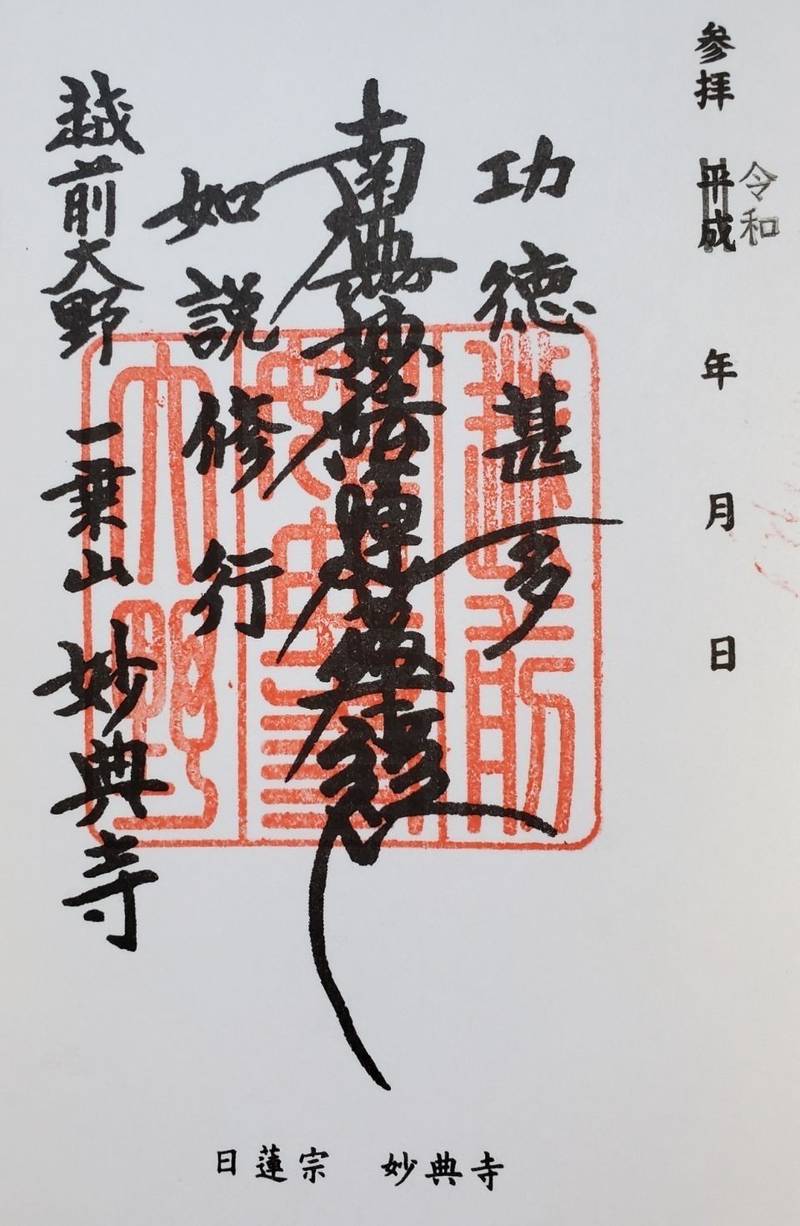 参拝 平成 年 月 日
令和
功徳甚多
南無妙法蓮華経
如説修行
越前大野 一乗山 妙典寺
越前
妙典寺
大野
日蓮宗 妙典寺